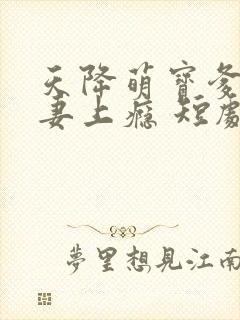 天降萌寶爹
妻上癮 短劇
夢里想見江南